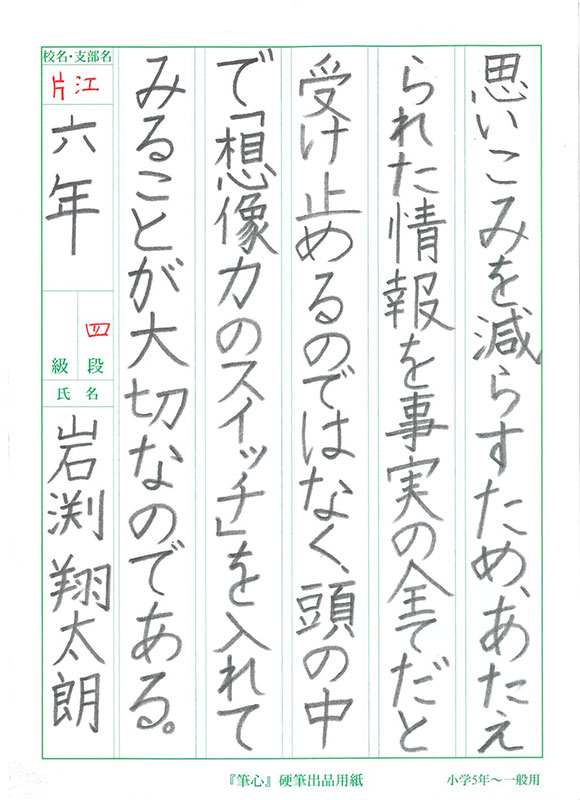 思いこみを減らすため、あたえ
られた情報を事実の全てだと
受け止めるのではなく、頭の中
で「想像力のスイッチ」を入れて
みることが大切なのである。
校名・支部名
片江
六年
四
段
級
氏名
岩渕翔太朗
『筆心』硬筆出品用紙
小学5年〜一般用